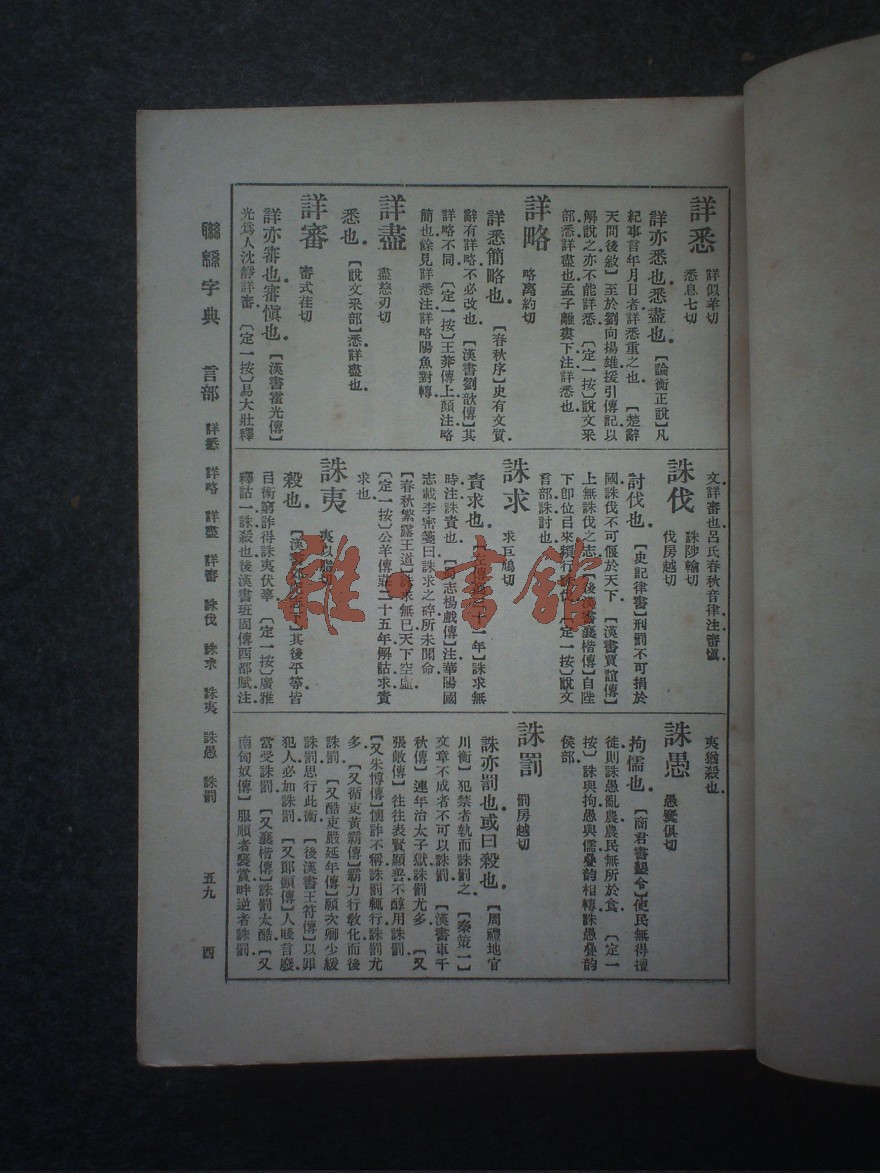 詳悉
詳似羊切
悉息七切
詳亦悉也悉盡也。【論衡正說】凡
紀事言年月日者詳悉重之也【楚辭
天問後敘】至於劉向揚雄援引傳記以
解說之亦不能詳悉【定一按】說文釆
部悉詳盡也孟子離婁下注詳悉也
詳略
略离約切
詳悉簡略也。【春秋序】史有文質
辭有詳略不必改也【漢書劉歆傳】其
詳略不同【定一按】王莽傳上顏注略
簡也餘見詳悉注詳略陽魚對轉
詳盡
盡慈刃切
悉也。【說文釆部】悉詳盡也
詳審
審式荏切
詳亦審也審愼也。【漢書霍光傳】
光爲人沈靜詳審【定一按】易大壯釋
文詳審也呂氏春秋音律注審愼
誅伐
誅陟輸切
伐房越切
討伐也。【史記律書】刑罰不可捐於
國誅伐不可偃於天下【漢書賈誼傳】
上無誅伐之志【後漢書襄楷傳】自陛
下卽位㠯來頻行誅伐【定一按】說文
言部誅討也
誅求
求巨鳩切
責求也。【左傳襄三十一年】誅求無
時注誅責也【蜀志楊戲傳】注華陽國
志載李密箋曰誅求之碎所未聞命
【春秋繁露王道】誅求無已天下空虛
【定一按】公羊傳莊二十五年解詁求責
求也
誅夷
夷以脂切
殺也。【漢書
其後平等皆
㠯術窮詐得誅夷伏辜【定一按】廣雅
釋詁一誅殺也後漢書班固傳西都賦注
夷猶殺也
誅愚
愚麌俱切
拘儒也。【商君書墾令】使民無得擅
徙則誅愚亂農農民無所於食【定一
按】誅與拘愚與儒疊韵相轉誅愚疊韵
侯部
誅罰
罰房越切
誅亦罰也或曰殺也。【周禮地官
川衡】犯禁者執而誅罰之【秦策一】
文章不成者不可以誅罰【漢書車千
秋傳】連年治太子獄誅罰尤多【又
張敞傳】往往表賢顯善不醇用誅罰
【又朱博傳】懷詐不稱誅罰輒行誅罰尤
多【又循吏黃霸傳】霸力行敎化而後
誅罰【又酷吏嚴延年傳】願次卿少緩
誅罰思行此術【後漢書王符傳】以罪
犯人必加誅罰【又郞顗傳】人賤言廢
當受誅罰【又襄楷傳】誅罰太酷【又
南匈奴傳】服順者襃賞畔逆者誅罰
聯緜字典 言部 詳悉 詳略 詳盡 詳審 誅伐 誅求 誅夷 誅愚 誅罰 五九 酉
雜書館